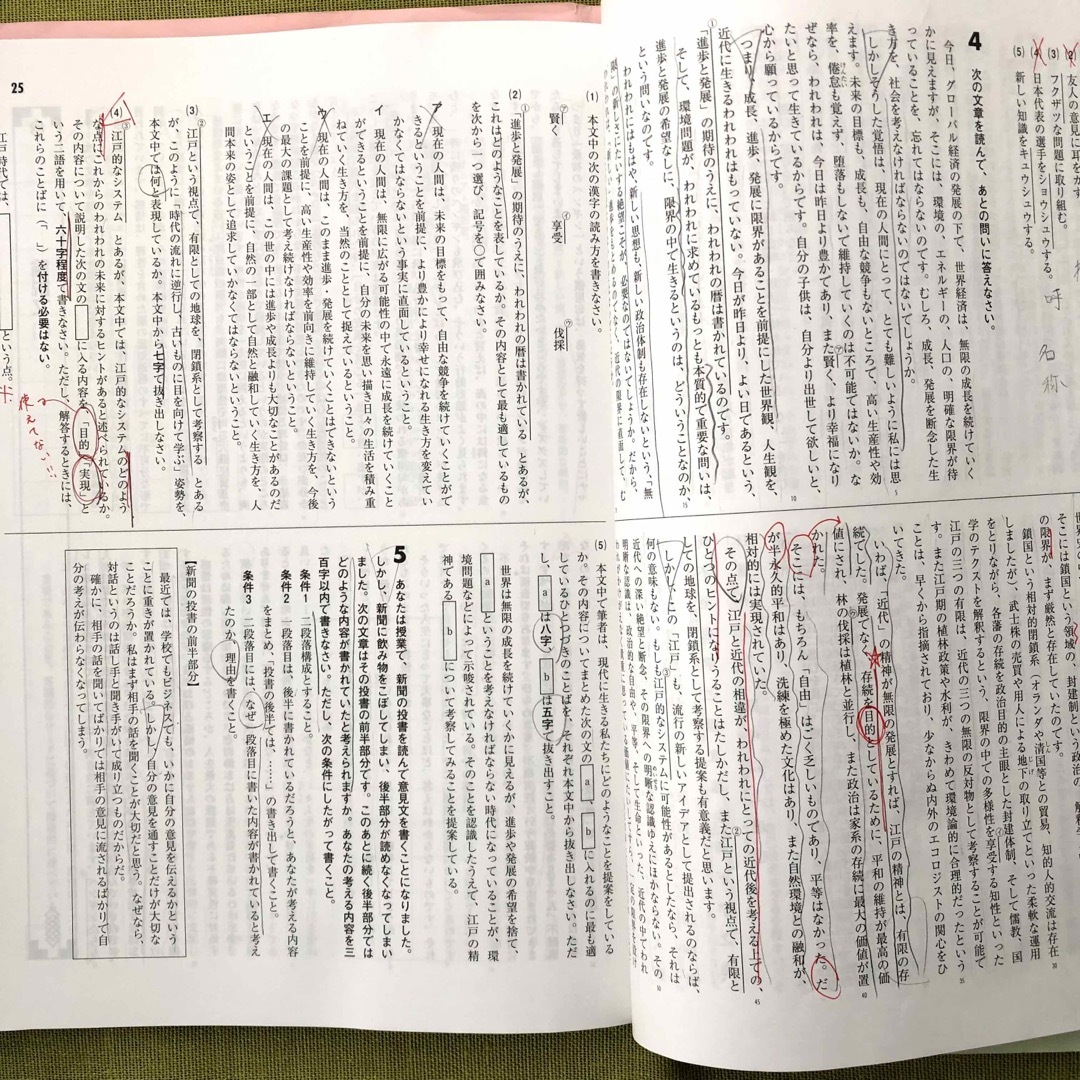 友人の意見に耳をかす
(3) フクザツな問題に取り組む。
(4) 日本代表の選手をショウシュウする。
(5) 新しい知識をキュウシュウする。
呼
名称
4 次の文章を読んで、あとの問いに答えなさい。
今日、グローバル経済の発展の下で、世界経済は、無限の成長を続けていく
かに見えますが、そこには、環境の、エネルギーの、人口の、明確な限界が待
っていることを、忘れてはならないのではないでしょうか。
しかしそうした覚悟は、現在の人間にとって、とても難しいように私には思
えます。未来の目標も、成長も、自由な競争もないところで、高い生産性や効
率を、倦怠も覚えず、堕落もしないで維持していくのは不可能ではないか。な
ぜなら、われわれは、今日は昨日より豊かであり、また賢く、より幸福になり
たいと思って生きているからです。自分の子供は、自分より出世して欲しいと、
心から願っているからです。
つまり、成長、進歩、発展に限界があることを前提にした世界観、人生観を、
近代に生きるわれわれはもっていない。今日が昨日より、よい日であるという、
①「進歩と発展」の期待のうえに、われわれの暦は書かれているのです。
そして、環境問題が、われわれに求めているもっとも本質的で重要な問いは、
進歩と発展の希望なしに、限界の中で生きるというのは、どういうことなのか、
という問いなのです。
5
10
15
そこには国としての領域の、封建制という政
の限界が、まず厳然と存在していました。
鎖国という相対的閉鎖系（オランダや清国等との貿易、知的人的交流は存在
しましたが、武士株の売買や用人による地下の取り立てといった柔軟な運用
をとりながら、各藩の存続を政治目的の主眼とした封建体制、そして儒教、国
学のテクストを解釈するという、限界の中での多様性を享受する知性といった
江戸の三つの有限は、近代の三つの無限の反対物として考察することが可能で
す。また江戸期の植林政策や水利が、きわめて環境論的に合理的だったという
ことは、早くから指摘されており、少なからぬ内外のエコロジストの関心をひ
いてきた。
いわば、「近代」の精神が無限の発展とすれば、江戸の精神とは、有限の存
続でした。発展でなく、存続を目的としているために、平和の維持が最高の価
値にされ、林の伐採は植林と並行し、また政治は家系の存続に最大の価値が置
かれた。
そこには、もちろん「自由」はごく乏しいものであり、平等はなかった。だ
が半永久的平和はあり、洗練を極めた文化はあり、また自然環境との融和が、
相対的には実現されていた。
その点で、江戸と近代の相違が、われわれにとっての近代後を考える上での、
ひとつのヒントになりうることはたしかだし、また江戸という視点で、有限と
しての地球を、閉鎖系として考察する提案も有意義だと思います。
しかしこの「江戸」も、流行の新しいアイデアとして提出されるのならば、
何の意味もない。もしも江戸的なシステムに可能性があるとしたなら、それは
近代への深い絶望と断念と、その限界への明晰な認識ゆえにほかならない。その
30
35
45
50
(1) 本文中の次の漢字の読み方を書きなさい。
㋐ 賢く ㋑ 享受 ㋒ 伐採
(2) ①「進歩と発展」の期待のうえに、われわれの暦は書かれている とあるが、
これはどのようなことを表しているか。その内容として最も適しているもの
を次から一つ選び、記号を○で囲みなさい。
ア 現在の人間は、未来の目標をもって、自由な競争を続けていくことがで
きるということを前提に、より豊かにより幸せになれる生き方を変えてい
かなくてはならないという事実に直面しているということ。
イ 現在の人間は、無限に広がる可能性の中で永遠に成長を続けていくこと
ができるということを前提に、自分の未来を思い描き日々の生活を積み重
ねていく生き方を、当然のこととして捉えているということ。
ウ 現在の人間は、このまま進歩・発展を続けていくことはできないという
ことを前提に、高い生産性や効率を前向きに維持していく生き方を、今後
の最大の課題として考え続けなければならないということ。
エ 現在の人間は、この世の中には進歩や成長よりも大切なことがあるのだ
ということを前提に、自然の一部として自然と融和していく生き方を、人
間本来の姿として追求していかなくてはならないということ。
(3) ②江戸という視点で、有限としての地球を、閉鎖系として考察する とある
が、このように「時代の流れに逆行し、古いものに目を向けて学ぶ」姿勢を、
本文中では何と表現しているか。本文中から七字で抜き出しなさい。
(4) ③江戸的なシステム とあるが、本文中では、江戸的なシステムのどのよう
な点にこれからのわれわれの未来に対するヒントがあると述べられているか。
その内容について説明した次の文の に入る内容を、「目的」「実現」と
いう二語を用いて、六十字程度で書きなさい。ただし、解答するときには、
これらのことばに「 」を付ける必要はない。
江戸時代では、 という点。
使えてない!!
25
(5) 本文中で筆者は、現代に生きる私たちにどのようなことを提案している
か。その内容についてまとめた次の文の a 、 b に入れるのに最も適
しているひとつづきのことばを、それぞれ本文中から抜き出しなさい。ただ
し、 a は八字、 b は五字で抜き出すこと。
世界は無限の成長を続けていくかに見えるが、進歩や発展の希望を捨て、
a ということを考えなければならない時代になっていることが、環
境問題などによって示唆されている。そのことを認識したうえで、江戸の精
神である b について考察してみることを提案している。
5 あなたは授業で、新聞の投書を読んで意見文を書くことになりました。
しかし、新聞に飲み物をこぼしてしまい、後半部分が読めなくなってしまい
ました。次の文章はその投書の前半部分です。このあとに続く後半部分では
どのような内容が書かれていたと考えられますか。あなたの考える内容を三
百字以内で書きなさい。ただし、次の条件にしたがって書くこと。
条件1 二段落構成とすること。
条件2 一段落目は、後半に書かれているだろうと、あなたが考える内容
をまとめ、「投書の後半では、……」の書き出しで書くこと。
条件3 二段落目には、なぜ一段落目に書いた内容が書かれていると考え
たのか、理由を書くこと。
【新聞の投書の前半部分】
最近では、学校でもビジネスでも、いかに自分の意見を伝えるかという
ことに重きが置かれている。しかし、自分の意見を通すことだけが大切な
ことだろうか。私はまず相手の話を聞くことが大切だと思う。なぜなら、
対話というのは話し手と聞き手がいて成り立つものだからだ。
確かに、相手の話を聞いてばかりでは相手の意見に流されるばかりで自
分の考えが伝わらなくなってしまう。